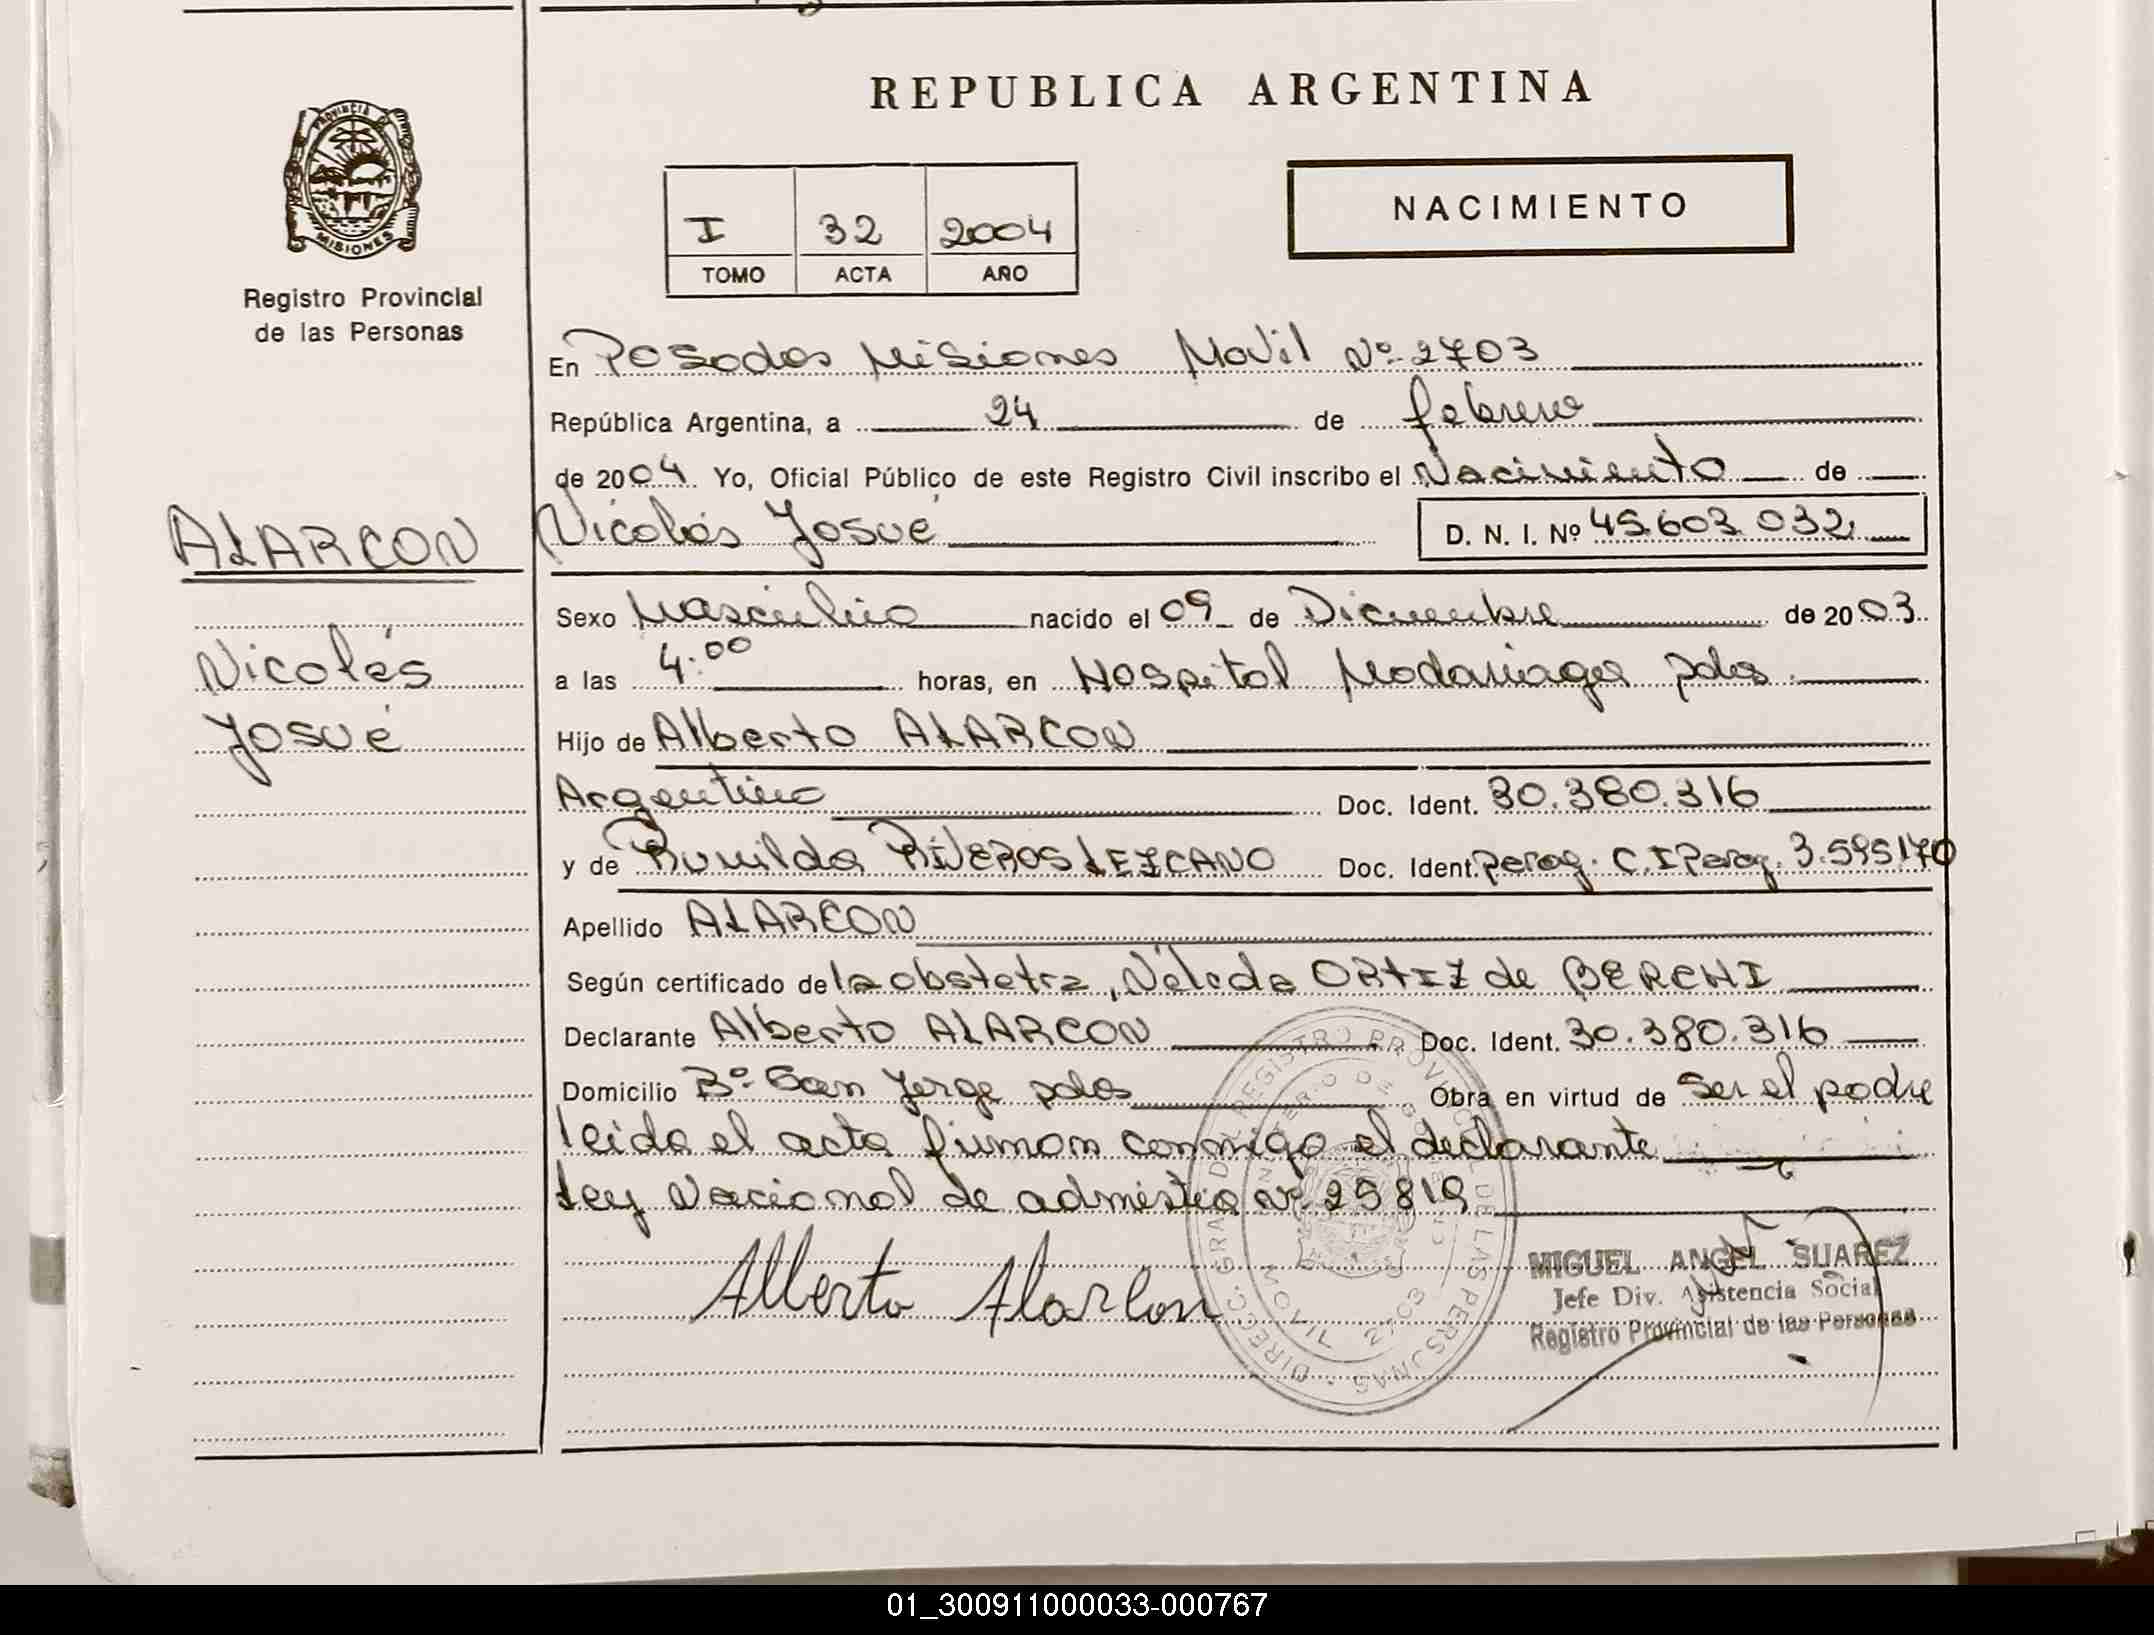 REPUBLICA ARGENTINA
PROVINCIA DE
MISIONES
Registro Provincial
de las Personas
I 32 2004
TOMO ACTA AÑO
NACIMIENTO
En Posadas Misiones Movil Nº 2703
República Argentina, a 24 de febrero
de 2004. Yo, Oficial Público de este Registro Civil inscribo el Nacimiento de
ALARCON
Nicolás Josué D. N. I. Nº 45.603.032
Sexo Masculino nacido el 09 de Diciembre de 2003
Nicolás
a las 4:00 horas, en Hospital Madariaga pdas
Josué
Hijo de Alberto ALARCON
Argentino Doc. Ident. 30.380.316
y de Rumilda RIVEROS LEZCANO Doc. Ident. parag. C.I Parag. 3.595170
Apellido ALARCON
Según certificado de la obstetra, Nélada ORTIZ de BERCHI
Declarante Alberto ALARCON Doc. Ident. 30.380.316
Domicilio Bº San Jorge pdas Obra en virtud de ser el padre
leida el acta firman conmigo el declarante
Ley Nacional de admistia Nº 25819
Alberto Alarcon
DIRECC. GRAL. DEL REGISTRO PROVINCIAL DE LAS PERSONAS
MINISTERIO DE GOBIERNO
MOVIL 2703
MIGUEL ANGEL SUAREZ
Jefe Div. Asistencia Social
Registro Provincial de las Personas
01_300911000033-000767